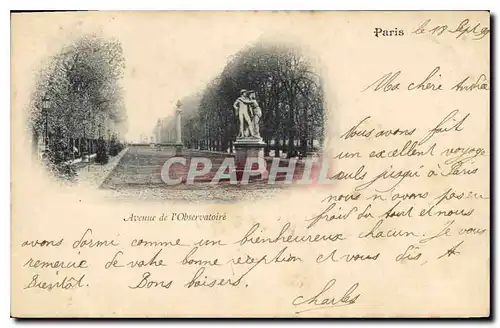 Paris le 13 Sept 99
Ma chère Andréa
Vous avons fait
un excellent voyage
seuls jusqu'à Paris
nous n'avons pas eu
froid du tout et nous
CPARAMA
Avenue de l'Observatoire
avons dormi comme un bienheureux chacun. Je vous
remercie de votre bonne réception et vous dis, A
Bientôt. Bons baisers.
Charles